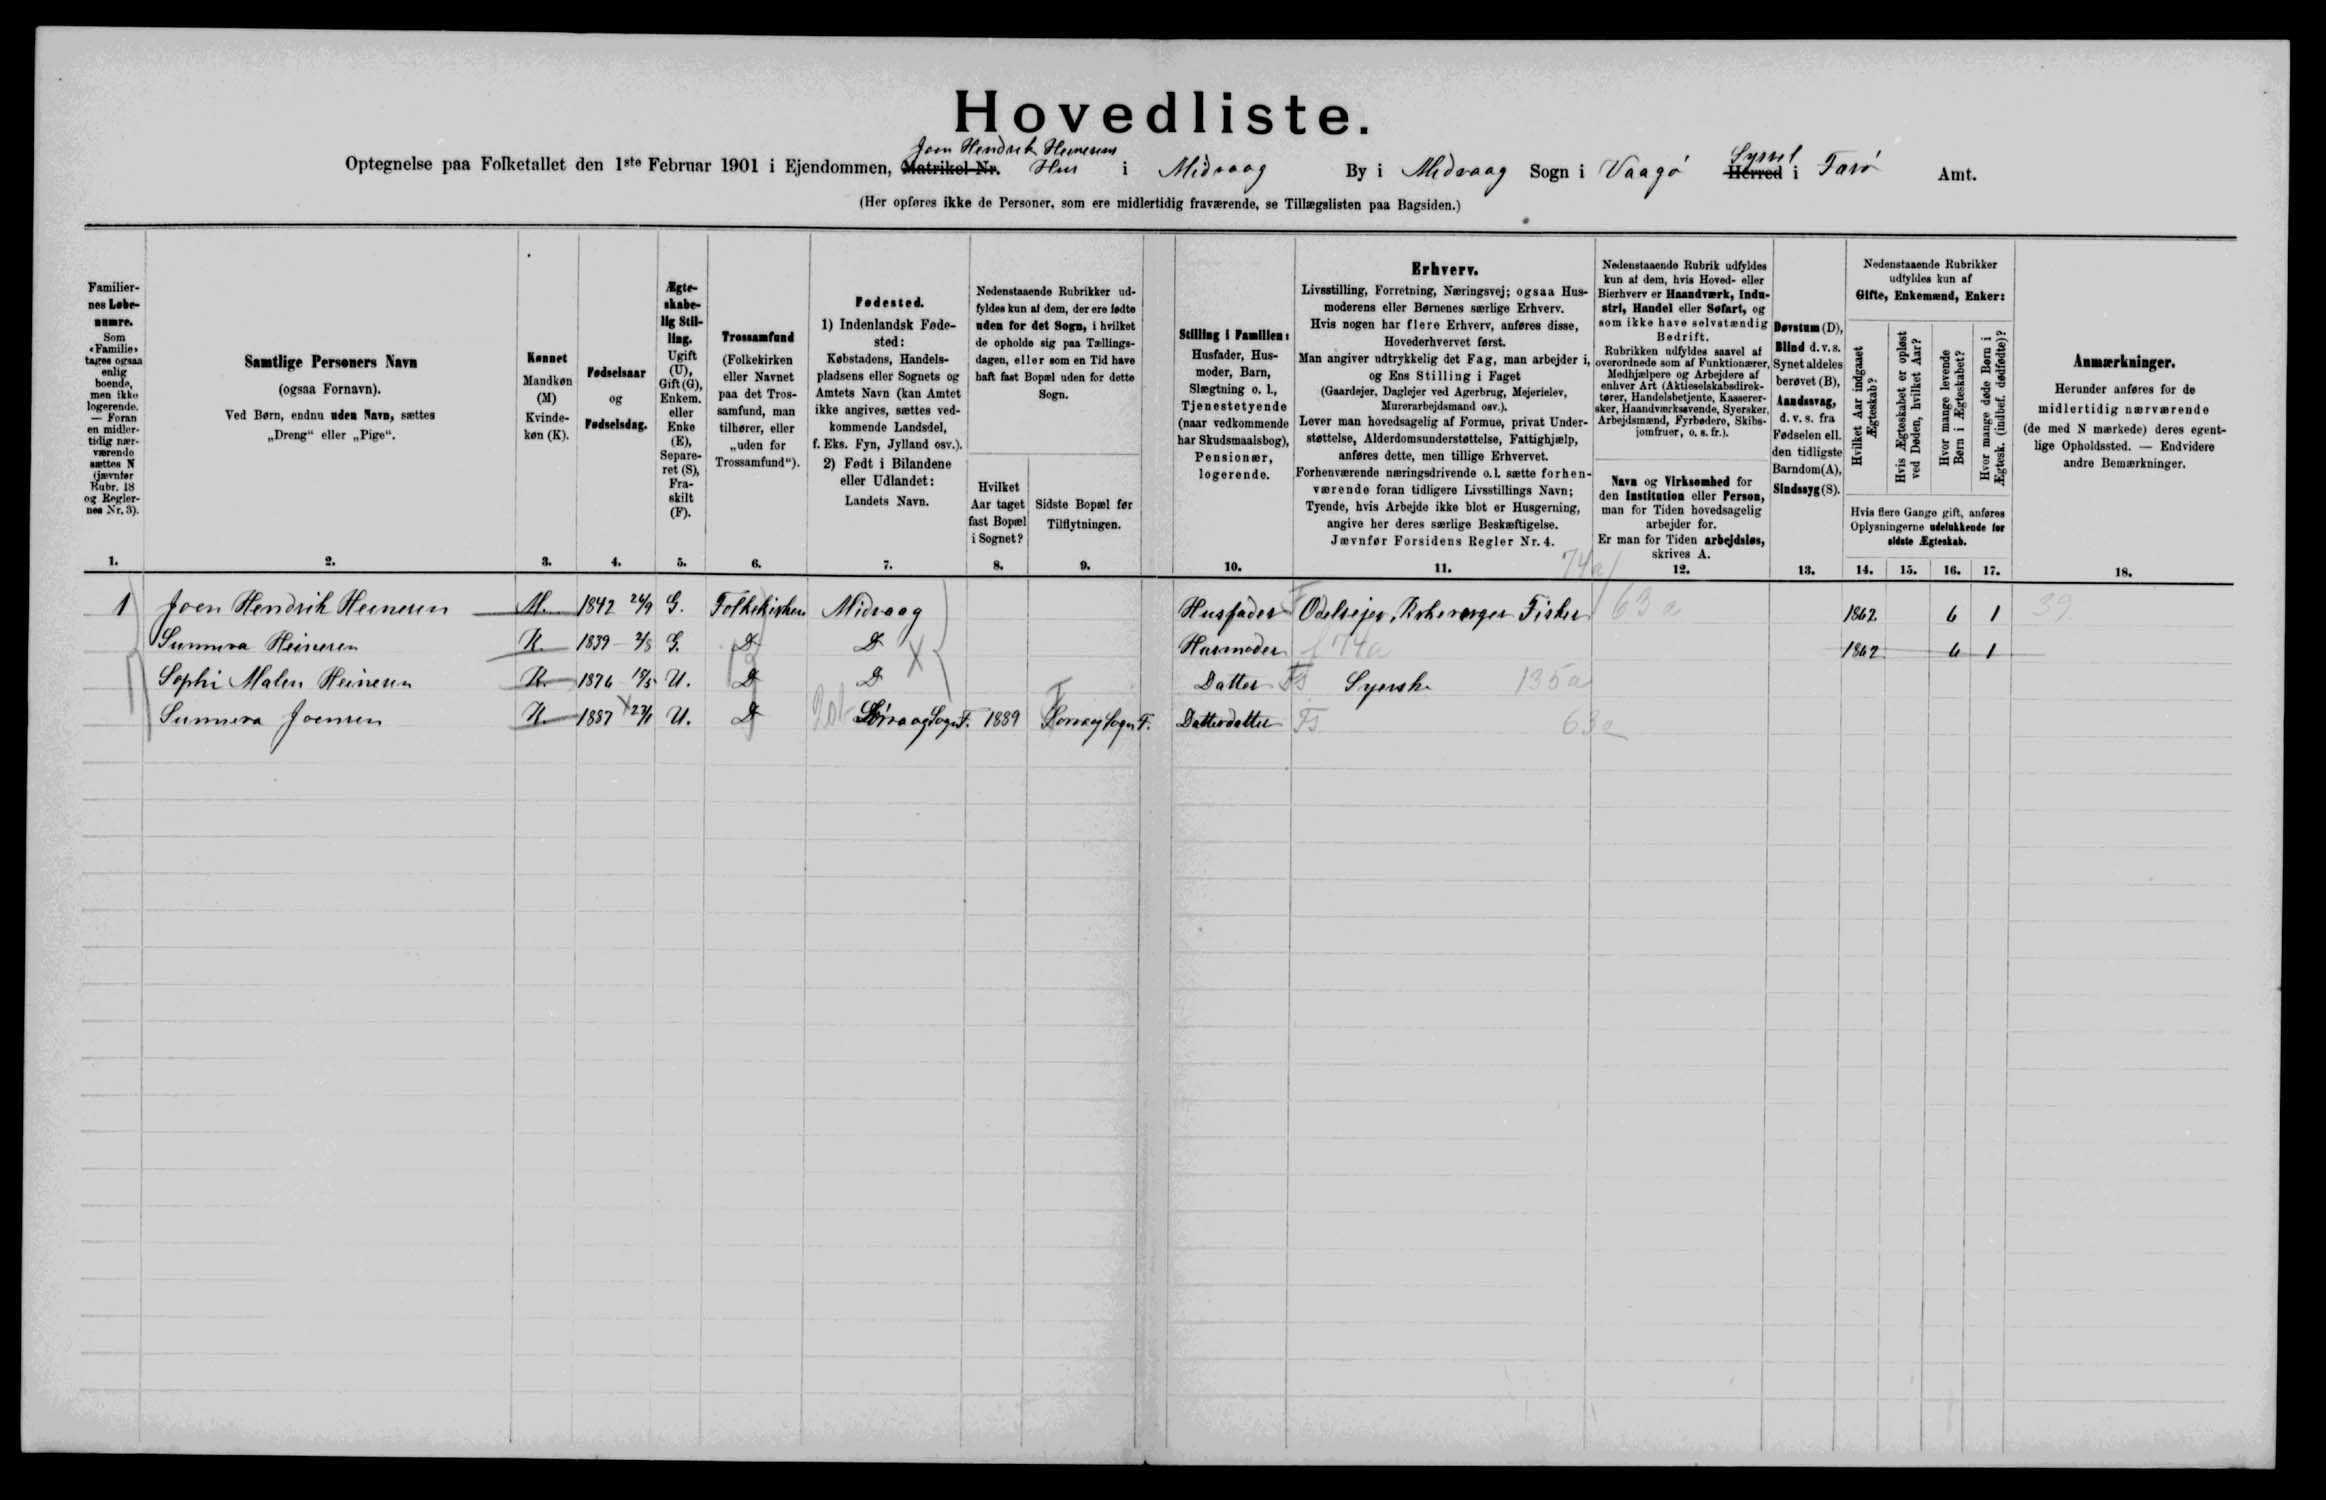 Hovedliste.
Joen Hendrik Heinesens
Optegnelse paa Folketallet den 1ste Februar 1901 i Ejendommen, Matrikel-Nr. Hus i Midvaag By i Midvaag Sogn i Vaagø Herred i Syssel Færø Amt.
(Her opføres ikke de Personer, som ere midlertidig fraværende, se Tillægslisten paa Bagsiden.)
Familiernes Løbenumre.
Som «Familie» tages ogsaa enlig boende, men ikke logerende. — Foran en midlertidig nærværende sættes N (jævnfør Rubr. 18 og Reglernes Nr. 3).
1.
Samtlige Personers Navn
(ogsaa Fornavn).
Ved Børn, endnu uden Navn, sættes
„Dreng“ eller „Pige“.
2.
Kønnet
Mandkøn
(M)
Kvinde-
køn (K).
3.
Fødselsaar
og
Fødselsdag.
4.
Ægte-
skabe-
lig Stil-
ling.
Ugift
(U),
Gift (G),
Enkem.
eller
Enke
(E),
Separe-
ret (S),
Fra-
skilt
(F).
5.
Trossamfund
(Folkekirken
eller Navnet
paa det Tros-
samfund, man
tilhører, eller
„uden for
Trossamfund“).
6.
Fødested.
1) Indenlandsk Føde-
sted:
Købstadens, Handels-
pladsens eller Sognets og
Amtets Navn (kan Amtet
ikke angives, sættes ved-
kommende Landsdel,
f. Eks. Fyn, Jylland osv.).
2) Født i Bilandene
eller Udlandet:
Landets Navn.
7.
Nedenstaaende Rubrikker ud-
fyldes kun af dem, der ere fødte
uden for det Sogn, i hvilket
de opholde sig paa Tællings-
dagen, eller som en Tid have
haft fast Bopæl uden for dette
Sogn.
Hvilket
Aar taget
fast Bopæl
i Sognet?
8.
Sidste Bopæl før
Tilflytningen.
9.
Stilling i Familien:
Husfader, Hus-
moder, Barn,
Slægtning o. l.,
Tjenestetyende
(naar vedkommende
har Skudsmaalsbog),
Pensionær,
logerende.
10.
Erhverv.
Livsstilling, Forretning, Næringsvej; ogsaa Hus-
moderens eller Børnenes særlige Erhverv.
Hvis nogen har flere Erhverv, anføres disse,
Hovederhvervet først.
Man angiver udtrykkelig det Fag, man arbejder i,
og Ens Stilling i Faget
(Gaardejer, Daglejer ved Agerbrug, Mejerielev,
Murerarbejdsmand osv.).
Lever man hovedsagelig af Formue, privat Under-
støttelse, Alderdomsunderstøttelse, Fattighjælp,
anføres dette, men tillige Erhvervet.
Forhenværende næringsdrivende o.l. sætte forhen-
værende foran tidligere Livsstillings Navn;
Tyende, hvis Arbejde ikke blot er Husgerning,
angive her deres særlige Beskæftigelse.
Jævnfør Forsidens Regler Nr. 4.
11.
Nedenstaaende Rubrik udfyldes
kun af dem, hvis Hoved- eller
Bierhverv er Haandværk, Indu-
stri, Handel eller Søfart, og
som ikke have selvstændig
Bedrift.
Rubrikken udfyldes saavel af
overordnede som af Funktionærer,
Medhjælpere og Arbejdere af
enhver Art (Aktieselskabsdirek-
tører, Handelsbetjente, Kasserer-
sker, Haandværkssvende, Syersker,
Arbejdsmænd, Fyrbødere, Skibs-
jomfruer, o. s. fr.).
Navn og Virksomhed for
den Institution eller Person,
man for Tiden hovedsagelig
arbejder for.
Er man for Tiden arbejdsløs,
skrives A.
12.
Døvstum (D),
Blind d. v. s.
Synet aldeles
berøvet (B),
Aandssvag,
d. v. s. fra
Fødselen ell.
den tidligste
Barndom (A),
Sindssyg (S).
13.
Nedenstaaende Rubrikker
udfyldes kun af
Gifte, Enkemænd, Enker:
Hvilket Aar indgaaet
Ægteskab?
Hvis Ægteskabet er opløst
ved Døden, hvilket Aar?
Hvor mange levende
Børn i Ægteskabet?
Hvor mange døde Børn i
Ægtesk. (indbef. dødfødte)?
Hvis flere Gange gift, anføres
Oplysningerne udelukkende for
sidste Ægteskab.
14. 15. 16. 17.
Anmærkninger.
Herunder anføres for de
midlertidig nærværende
(de med N mærkede) deres egent-
lige Opholdssted. — Endvidere
andre Bemærkninger.
18.
74a
1 Joen Hendrik Heinesen M. 1842 24/9 G. Folkekirken Midvaag Husfader F Odelsejer, Fisker 63a 1862 6 1 39
Sunneva Heinesen K. 1839 2/8 G. D D Husmoder f 74a 1862 6 1
Sophi Malen Heinesen K. 1876 U. D D X Datter Fs Syerske 135a
Sunneva Joensen K. 1887 U. D Sørvaag Sogn F. 1889 Sørvaag Sogn F. Datterdatter Fs 63a